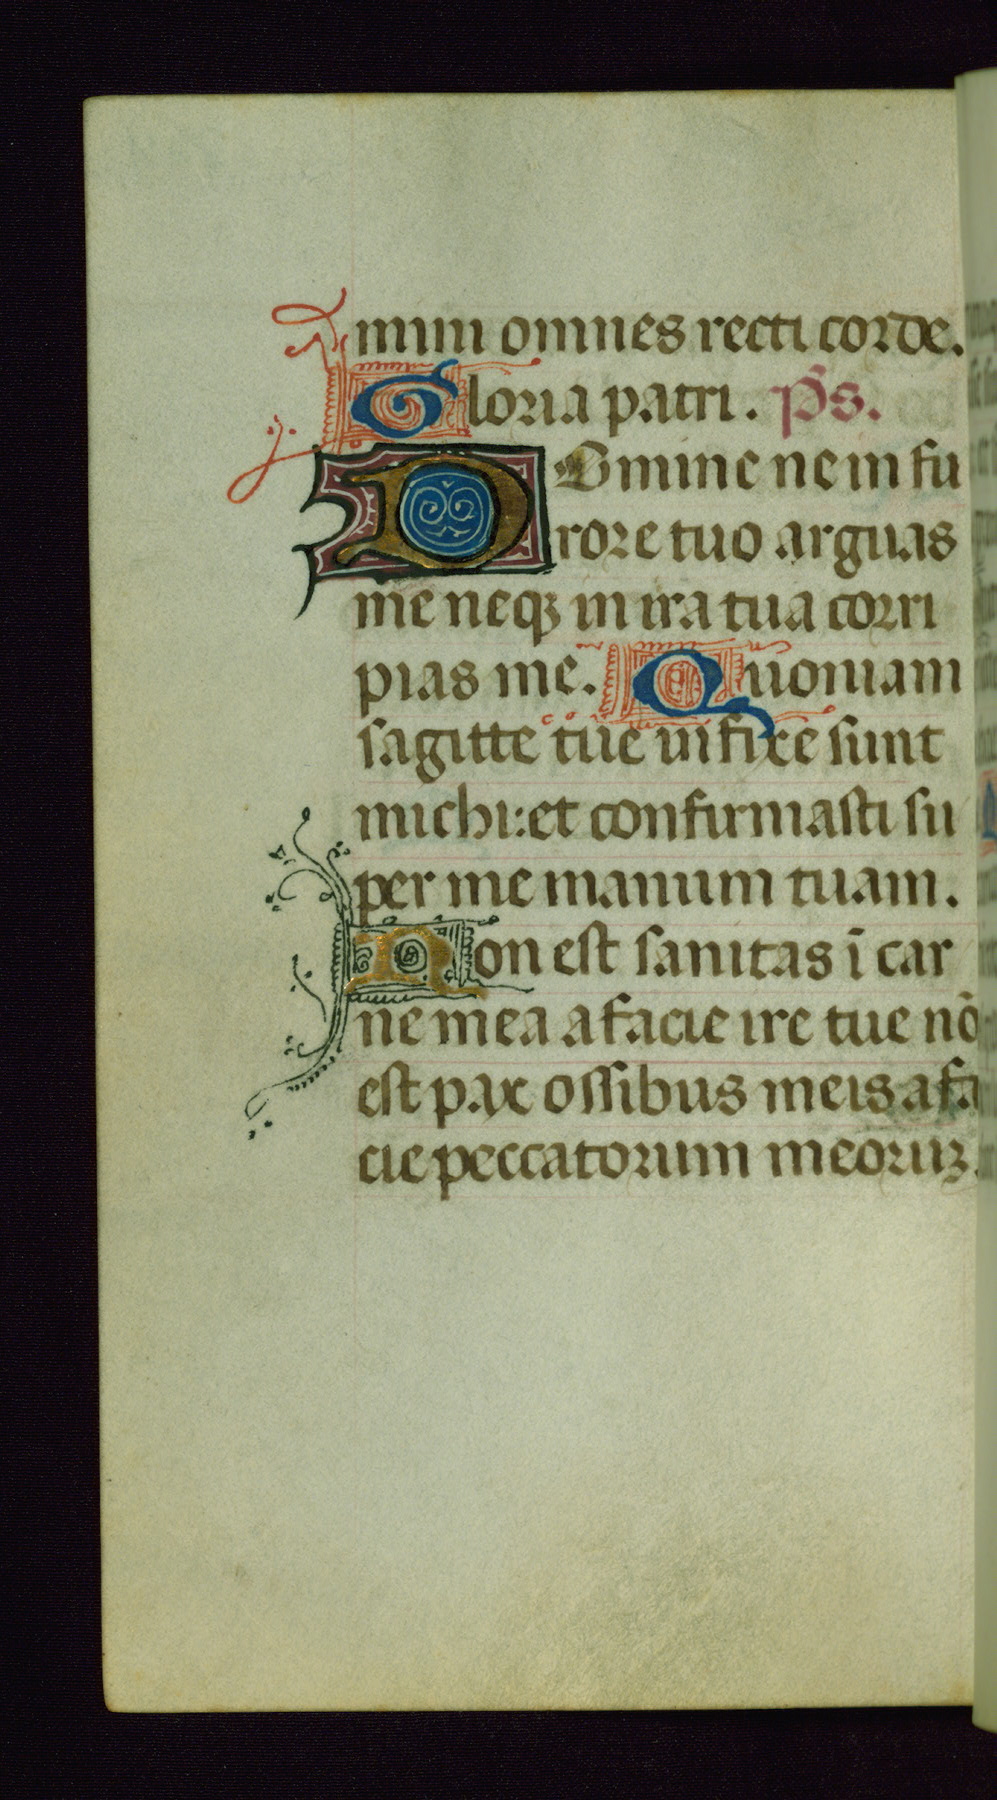 mini omnes recti corde.
Gloria patri. p̄s.
Domine ne in fu
rore tuo arguas
me neqꝫ in ira tua corri
pias me. Quoniam
sagitte tue infixe sunt
michi: et confirmasti su
per me manum tuam.
Non est sanitas ī car
ne mea a facie ire tue nō
est pax ossibus meis a fa
cie peccatorum meoruꝫ.